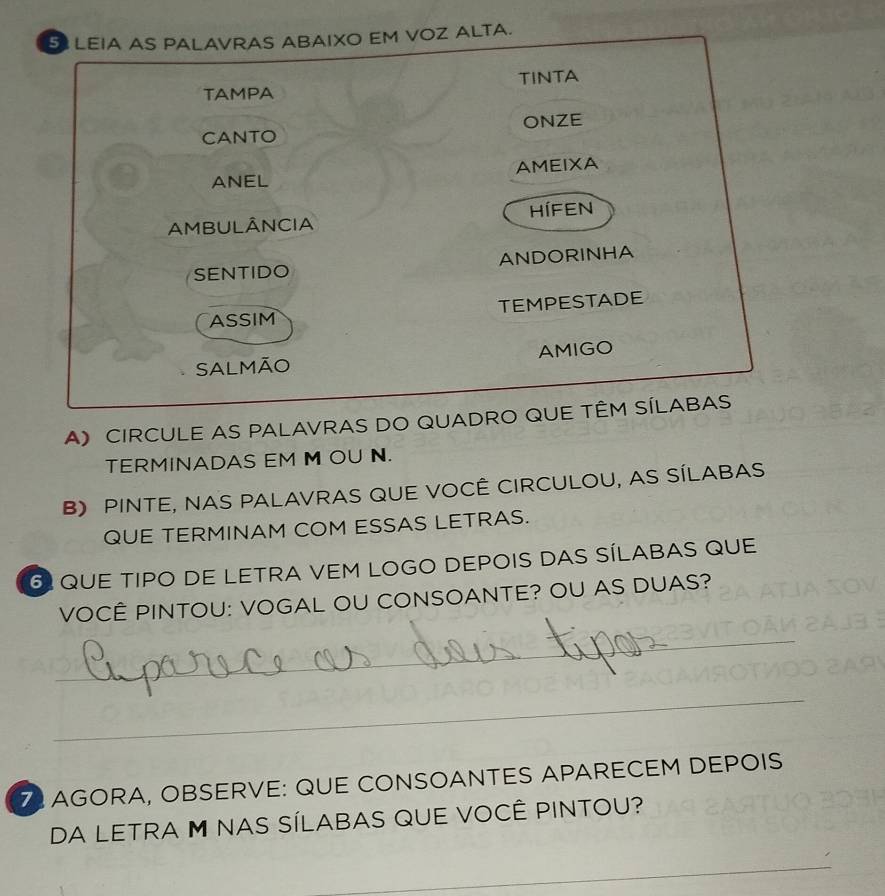 5 LEIA AS PALAVRAS ABAIXO EM VOZ ALTA.
TAMPA
CANTO
ANEL
AMBULÂNCIA
SENTIDO
ASSIM
SALMÃO
TINTA
ONZE
AMEIXA
HÍFEN
ANDORINHA
TEMPESTADE
AMIGO
A) CIRCULE AS PALAVRAS DO QUADRO QUE TÊM SÍLABAS
TERMINADAS EM M OU N.
B) PINTE, NAS PALAVRAS QUE VOCÊ CIRCULOU, AS SÍLABAS
QUE TERMINAM COM ESSAS LETRAS.
6 QUE TIPO DE LETRA VEM LOGO DEPOIS DAS SÍLABAS QUE
VOCÊ PINTOU: VOGAL OU CONSOANTE? OU AS DUAS?
aparece as dois tipos
7 AGORA, OBSERVE: QUE CONSOANTES APARECEM DEPOIS
DA LETRA M NAS SÍLABAS QUE VOCÊ PINTOU?